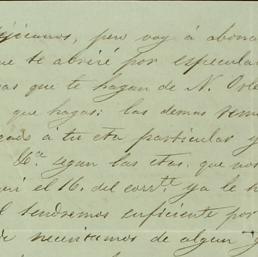 jicanos, pero voy á abona
ue te abriré por especular
as que te hagan de N. Orle
que hagas; las demas reme
cado á tu cta particular y
&Ca. segun las ctas. que nos
uri el 16. del corrte. ya le h
l tendremos suficiente por
de necesitamos de algun